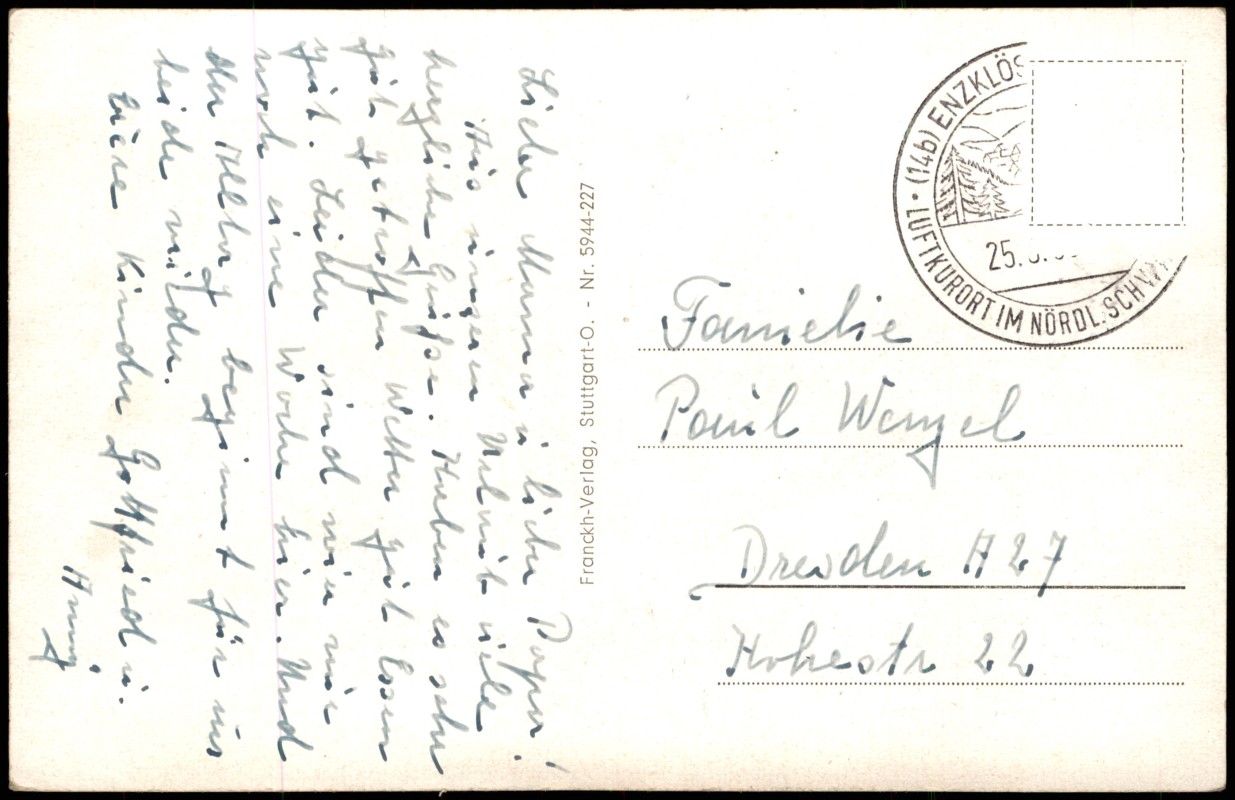 Liebe Mama u. lieber Papa!
Aus unserem Urlaub viele
herzliche Grüße. Haben es sehr
gut getroffen Wetter gut Essen
gut. Leider sind wir nur
noch eine Woche hier. Und
der Alltag beginnt für uns
beide wieder.
Eure Kinder Gottfried u.
Anni
Franckh-Verlag, Stuttgart-O. - Nr. 5944-227
(14b) ENZKLÖS
LUFTKURORT IM NÖRDL. SCHW
25.
Familie
Paul Wenzel
Dresden A 27
Hohestr 22